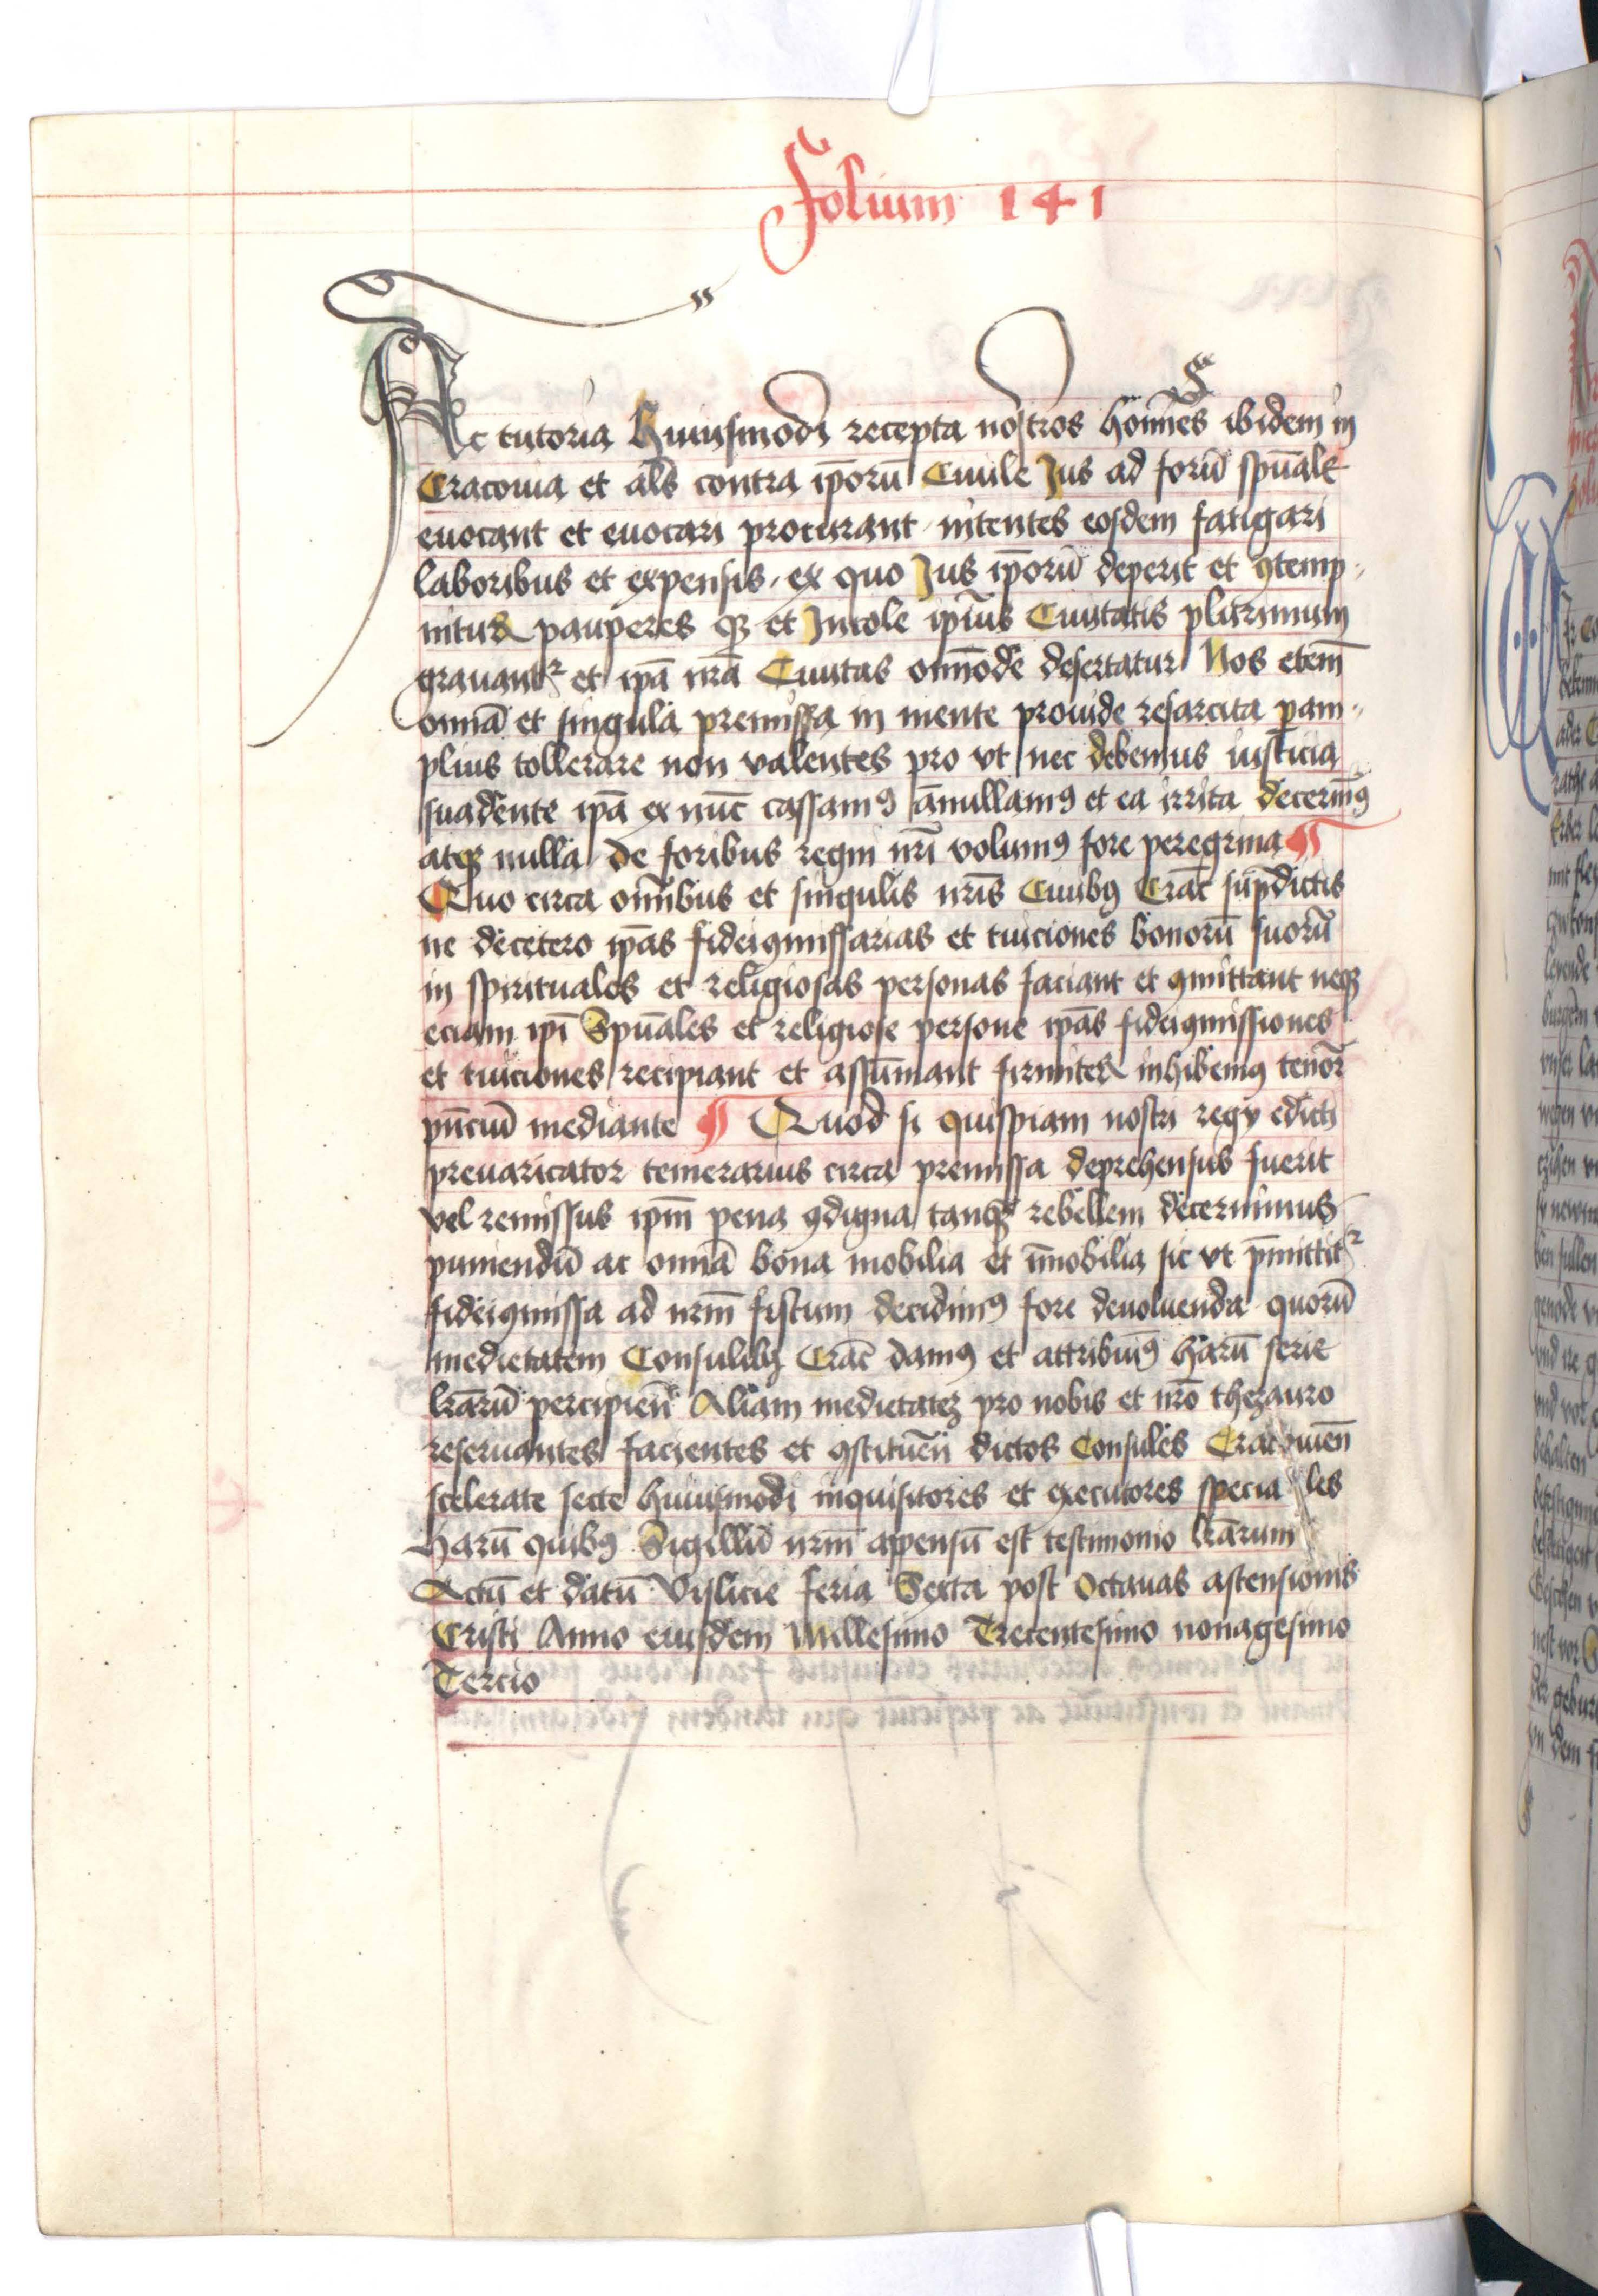 Folium 141
Ac tutoria huiusmodi recepta nostros homīes ibidem in
Cracouia et als̄ contra ip̄orū Ciuile Jus ad forū spūale
euocant et euocari procurant intentes eosdem fatigari
laboribus et expensis, ex quo Jus ip̄orū deperit et ꝯtemp
nitur pauperes qꝫ et Jncole ip̄ius Ciuitatis plurimum
grauantꝛ et ip̄a nr̄a Ciuitas om̄ode desertatur Nos etem̄
omnia et singula premissa in mente prouide resarcita p am
plius tollerare non valentes pro vt nec debemus iusticia
suadente ip̄a ex nūc cassamꝯ ānullamꝯ et ea irrita decernīꝯ
atqꝫ nulla de foribus regni nr̄i volumꝯ fore peregrina ¶
Quo circa om̄ibus et singulis nr̄is Ciuibꝯ Crac̄ sup̄dictis
ne decetero ip̄as fideiꝯmissarias et tuiciones bonorū suorū
in spirituales et religiosas personas faciant et ꝯmittant neqꝫ
eciam ip̄i Spūales et religiose persone ip̄as fideiꝯmissiones
et tuiciones recipiant et assūmant firmiter inhibemꝯ tenor̄
pn̄ciū mediante ¶ Quod si quispiam nostri regy edicti
preuaricator temerarius circa premissa deprehensus fuerit
vel remissus ip̄m pena ꝯdigna tanqꝫ rebellem decernimus
puniendū ac omnia bona mobilia et īmobilia sic vt p̄mittitꝛ
fideiꝯmissa ad nr̄m fiscum decidimꝯ fore deuoluenda quorū
medietatem Consulibꝫ Crac̄ damꝯ et attribuimꝯ harū serie
lr̄arū percipien̄ Aliam medietateꝫ pro nobis et nr̄o thezauro
reseruantes facientes et ꝯstituen̄ dictos Consules Cracouien̄
scelerate secte huiusmodi inquisitores et executores speciales
Harū quibꝯ Sigillū nr̄m appensū est testimonio lr̄arum
Actū et datū Vislicie feria Sexta post Octauas astensionis
Cristi Anno eiusdem Millesimo Trecentesimo nonagesimo
Tercio